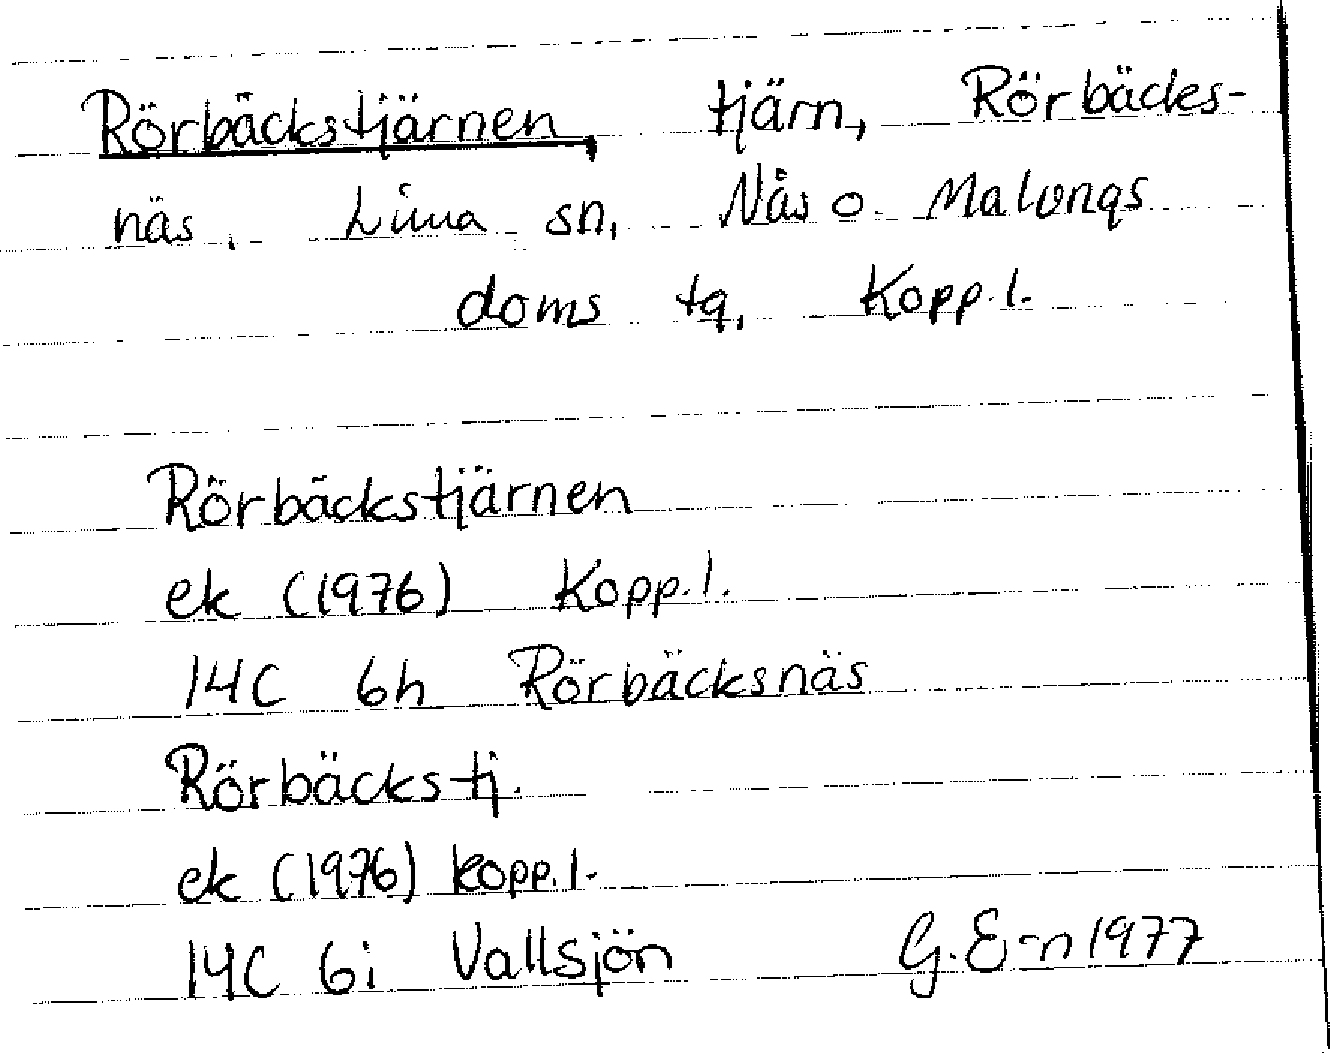 Rörbäckstjärnen, tjärn, Rörbäcks-
näs, Lima sn, Nås o. Malungs
doms tg, Kopp.l.
Rörbäckstjärnen
ek (1976) Kopp.l.
14C 6h Rörbäcksnäs
Rörbäckstj.
ek (1976) Kopp.l.
14C 6i Vallsjön G.E-n 1977